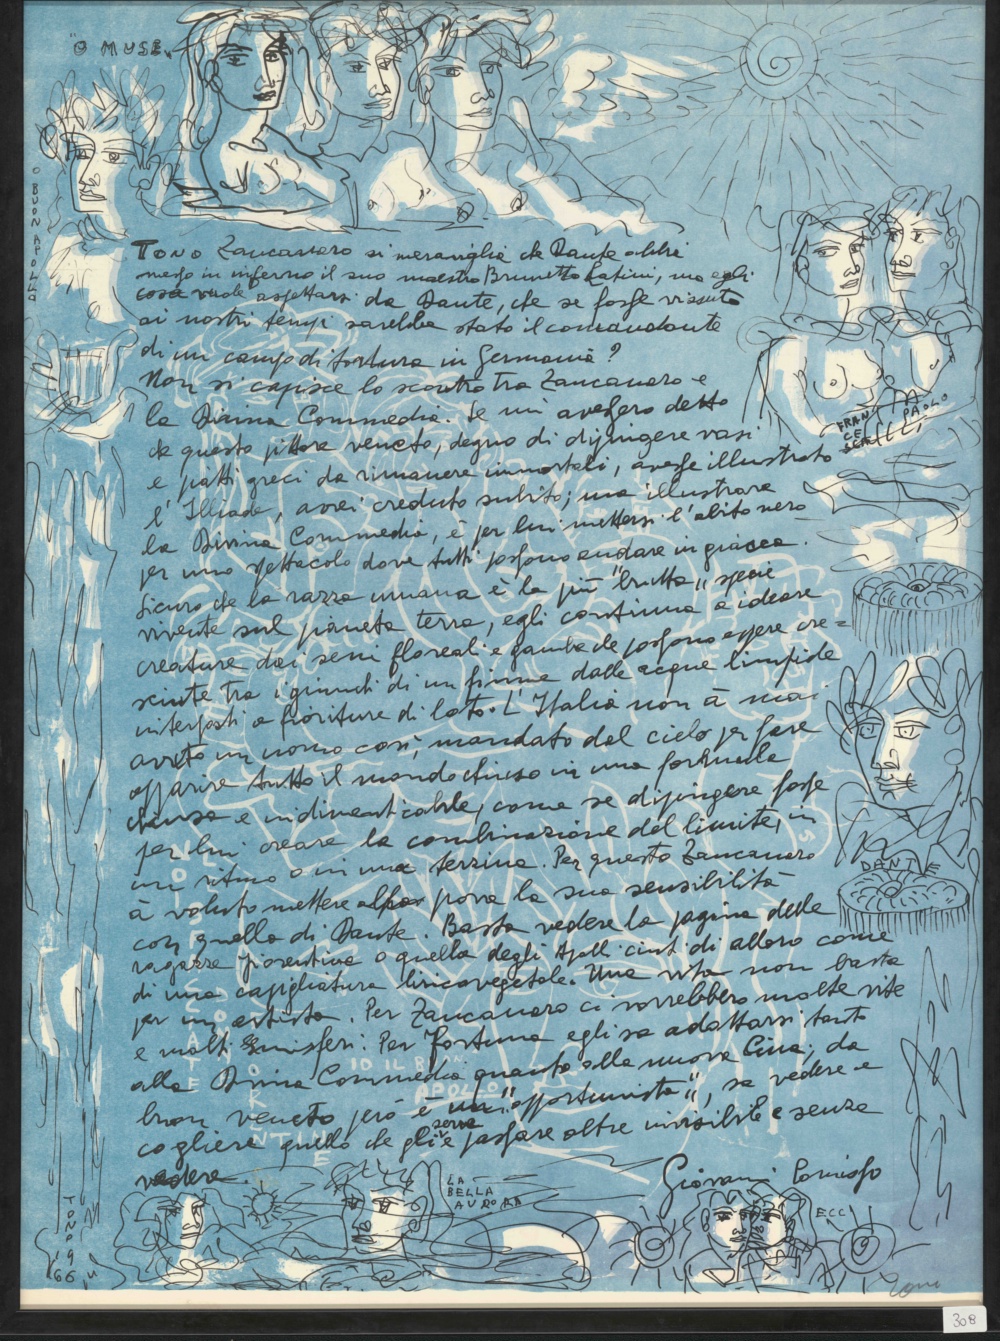 "O MUSE"
O BUON APOLLO
TONO Zancanaro si meraviglia che Dante abbia
messo in inferno il suo maestro Brunetto Latini, ma egli
cosa vuole aspettarsi da Dante, che se fosse vissuto
ai nostri tempi sarebbe stato il comandante
di un campo di tortura in Germania?
Non si capisce lo scontro tra Zancanaro e
la Divina Commedia. Se mi avessero detto
che questo pittore veneto, degno di dipingere vasi
e piatti greci da rimanere immortali, avesse illustrato
l'Illiade, avrei creduto subito; ma illustrare
la Divina Commedia, è per lui mettersi l'abito nero
per uno spettacolo dove tutti possono andare in giacca.
Sicuro che la razza umana è la più "brutta" specie
vivente sul pianeta terra, egli continua a ideare
creature dai seni floreali e gambe che possono essere cre=
sciute tra i giunchi di un fiume dalle acque limpide
interposti a fioriture di loto. L'Italia non à mai
avuto un uomo così, mandato dal cielo per fare
apparire tutto il mondo chiuso in una formula
chiusa e indimenticabile, come se dipingere fosse
per lui creare la combinazione del limite, in
un ritmo o in una terzina. Per questo Zancanaro
à voluto mettere alla prova la sua sensibilità
con quella di Dante. Basta vedere la pagina delle
ragazze fiorentine o quella degli Apolli cinti di alloro come
di una capigliatura liricovegetale. Una vita non basta
per un artista. Per Zancanaro ci vorrebbero molte vite
e molti emisferi. Per fortuna egli sa adattarsi tanto
alla Divina Commedia quanto alla nuova Cina; da
buon veneto però è un "opportunista", sa vedere e
cogliere quello che gli serve e passare oltre invisibile e senza
vedere.
Giovanni Comisso
FRAN
CE
SCA
PAOLO
DENTE
IO IL BUON
APOLLO
LA
BELLA
AURORA
ECC
TONO
66
Tono
308